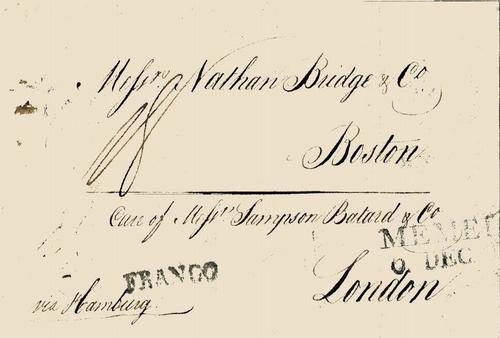 Messrs Nathan Bridge & Co
Boston
Care of Messrs Sampson Batard & Co
MEMEL
9 DEC
FRANCO
London
via Hamburg